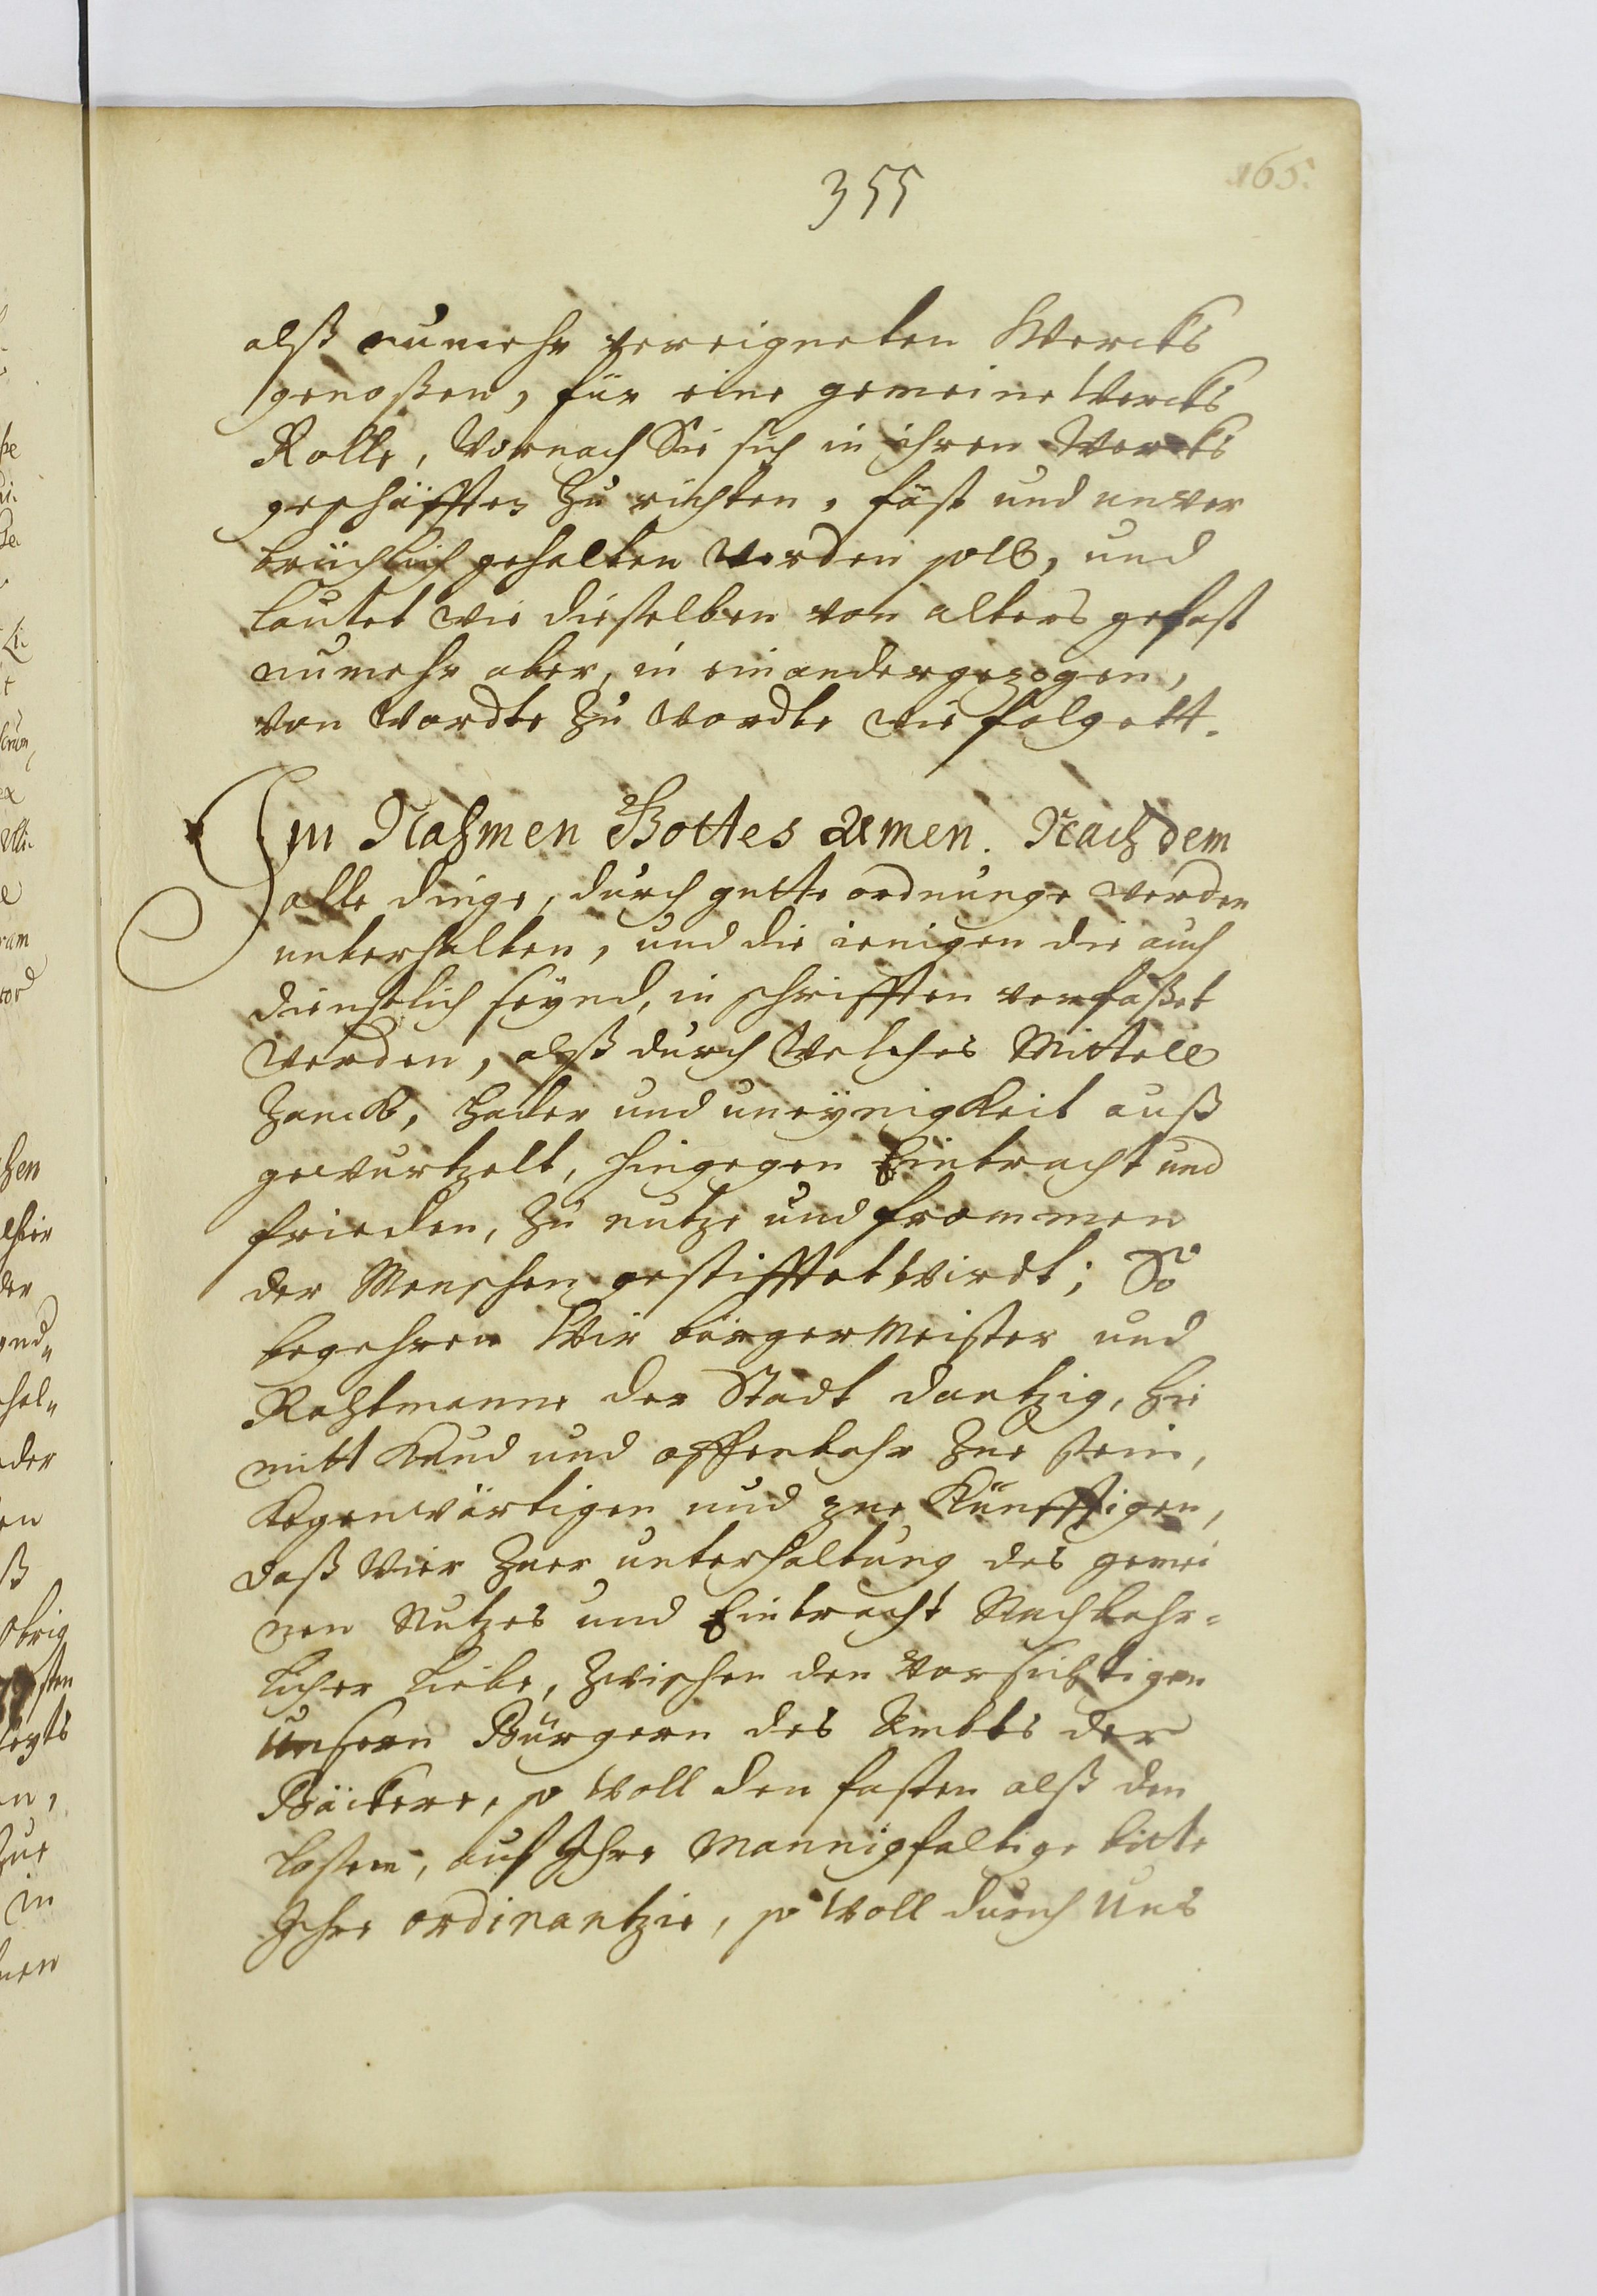 355
165.
alß numehr vereigneten Wercks
genoßen, für eine gemeine Wercks
Rolle, Wornach Sie sich in ihren Wercks
geschäfften zu richten, fäst und unver
brüchlich gehalten werden soll, und
lautet wie dieselben von alters gefast
numehr aber, in einandergezogen,
von Wordte zu Wordte wie folgett.
Im Nahmen Gottes Amen. Nachdem
alle dinge, durch gutte ordnunge werden
unterhalten, und die ienigen die auch
dienstlich seynd, in schrifften verfaßet
werden, alß durch Welches Mittell
Zanck, Hader und uneynigkeit auß
gewurtzelt, hingegen Eintracht und
frieden, zu nutze und frommen
der Menschen gestifftet wirdt; So
begehren Wir bürgermeister und
Rahtmanne der Stadt dantzig, hie
mitt kund und offenbahr zue sein,
kegenwärtigen und zue künfftigen,
daß Wier zuer unterhaltung des gemei
nen Nutzes und Eintracht Nachbahr-
licher liebe, zwischen den vorsichtigen
unsern Bürgern des Ambts der
Bäckere, so woll den fasten alß den
losen, auf Ihre mannigfaltige bitte
Ihre ordinantzie, so woll durch uns